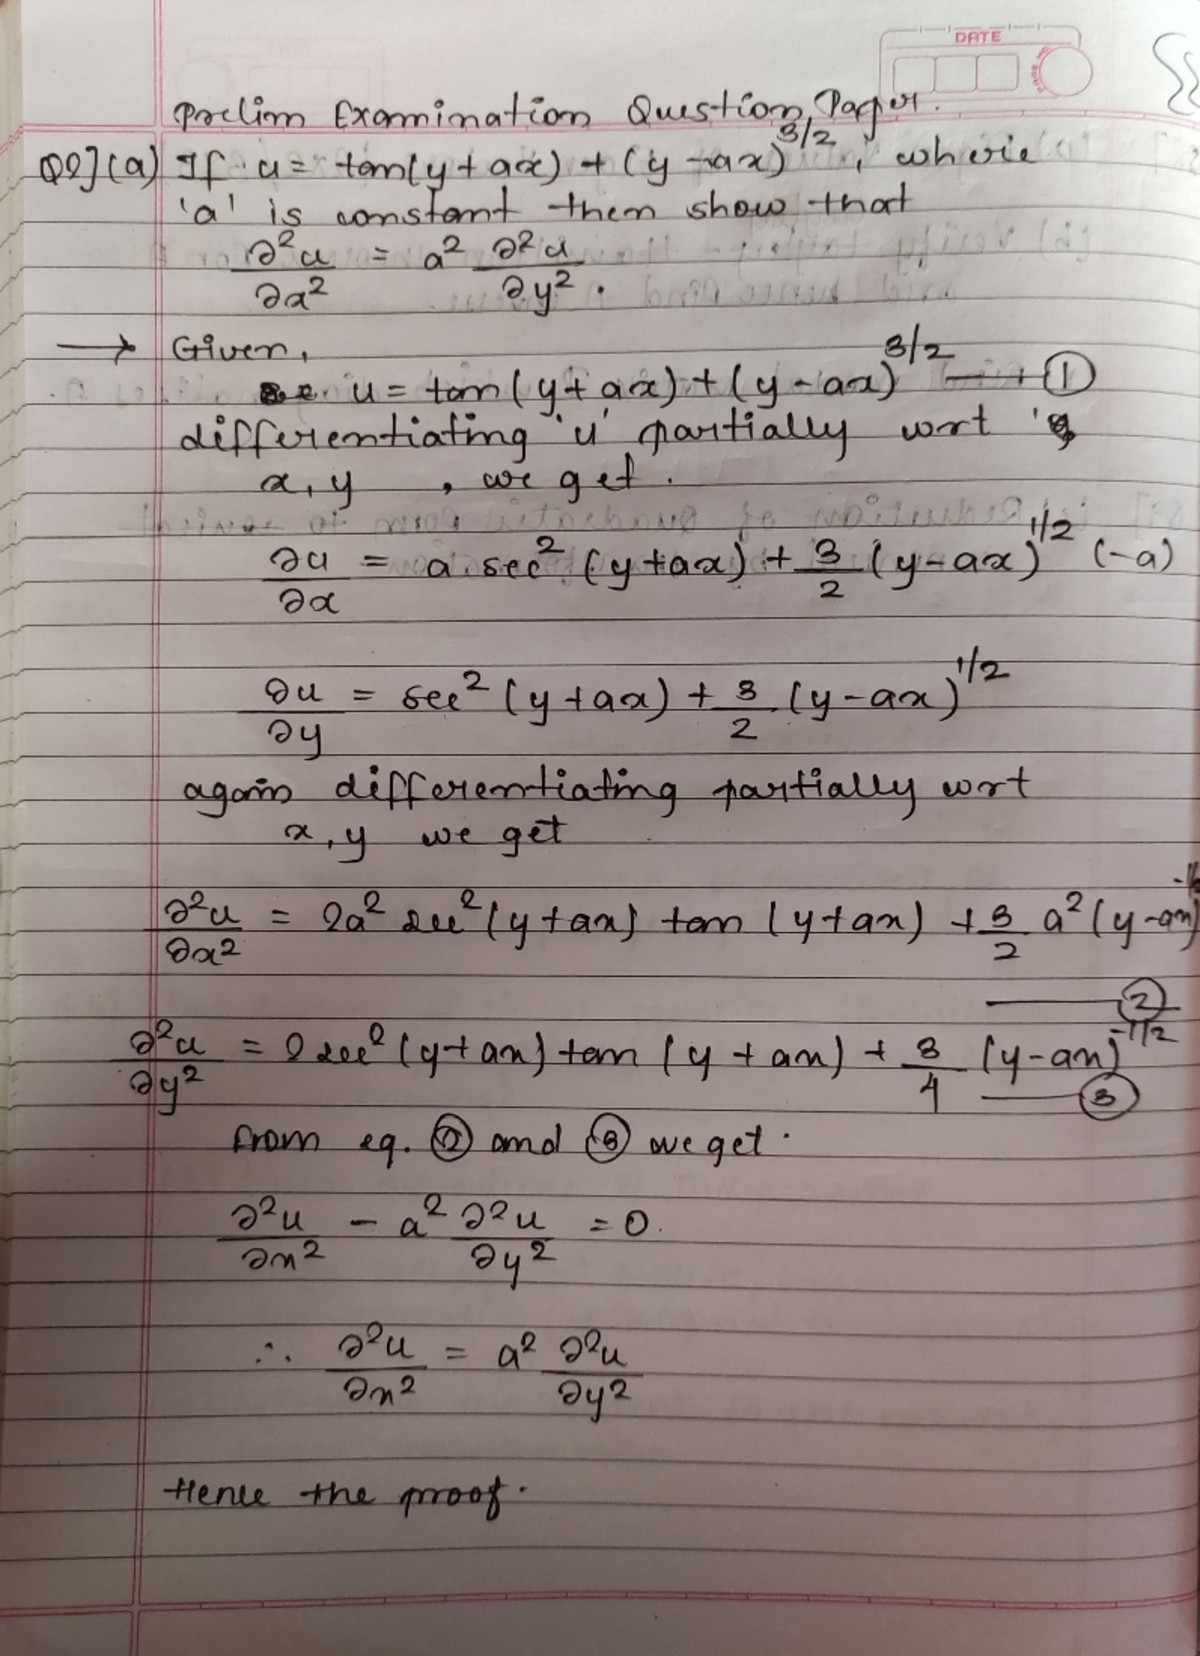 DATE
Prelim Examination Question Paper.
Q2] (a) If u = tan(y + ax) + (y - ax)^3/2, where
'a' is constant then show that
∂²u/∂x² = a² ∂²u/∂y².
→ Given,
u = tan(y + ax) + (y - ax)^3/2 —— ①
differentiating 'u' partially wrt
x, y , we get.
∂u/∂x = a sec² (y + ax) + 3/2 (y - ax)^1/2 (-a)
∂u/∂y = sec² (y + ax) + 3/2 (y - ax)^1/2
again differentiating partially wrt
x, y we get
∂²u/∂x² = 2a² sec² (y + ax) tan (y + ax) + 3/2 a² (y - ax)
—— ②
∂²u/∂y² = 2 sec² (y + ax) tan (y + ax) + 3/4 (y - ax)^-1/2
—— ③
from eq. ② and ③ we get.
∂²u/∂x² - a² ∂²u/∂y² = 0.
∴ ∂²u/∂x² = a² ∂²u/∂y²
Hence the proof.